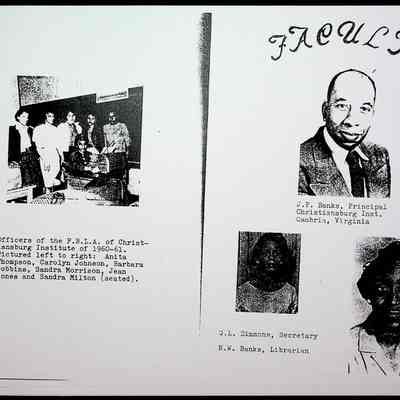 Officers of the F.B.L.A. of Christ-
iansburg Institute of 1960-61.
Pictured left to right: Anita
Thompson, Carolyn Johnson, Barbara
Robbins, Sandra Morrison, Jean
Jones and Sandra Milton (seated).
FACUL
J.F. Banks, Principal
Christiansburg Inst.
Cambria, Virginia
G.L. Simmons, Secretary
N.W. Banks, Librarian